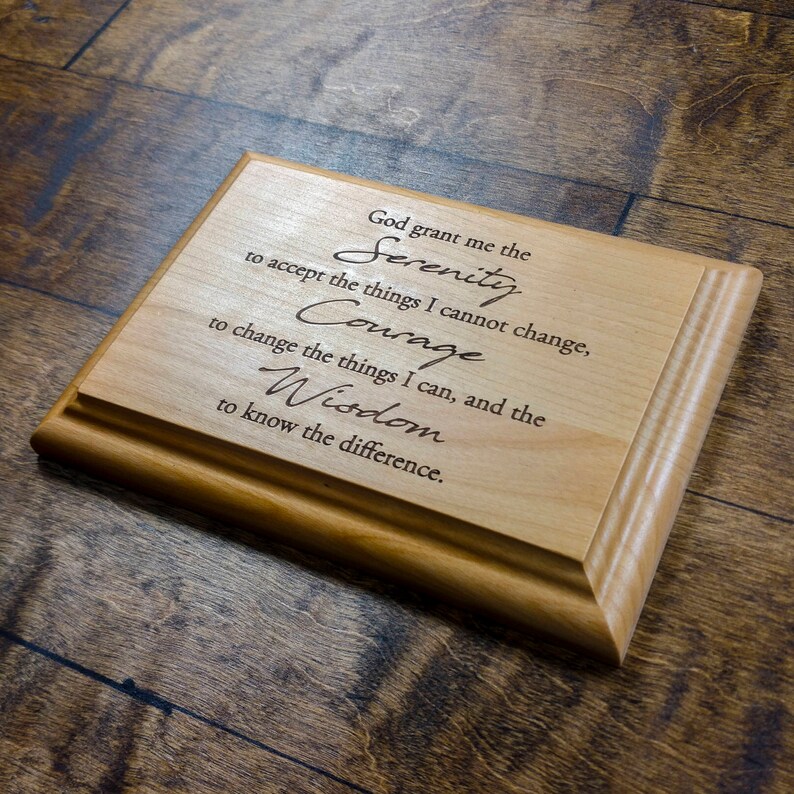 God grant me the
Serenity
to accept the things I cannot change,
Courage
to change the things I can, and the
Wisdom
to know the difference.